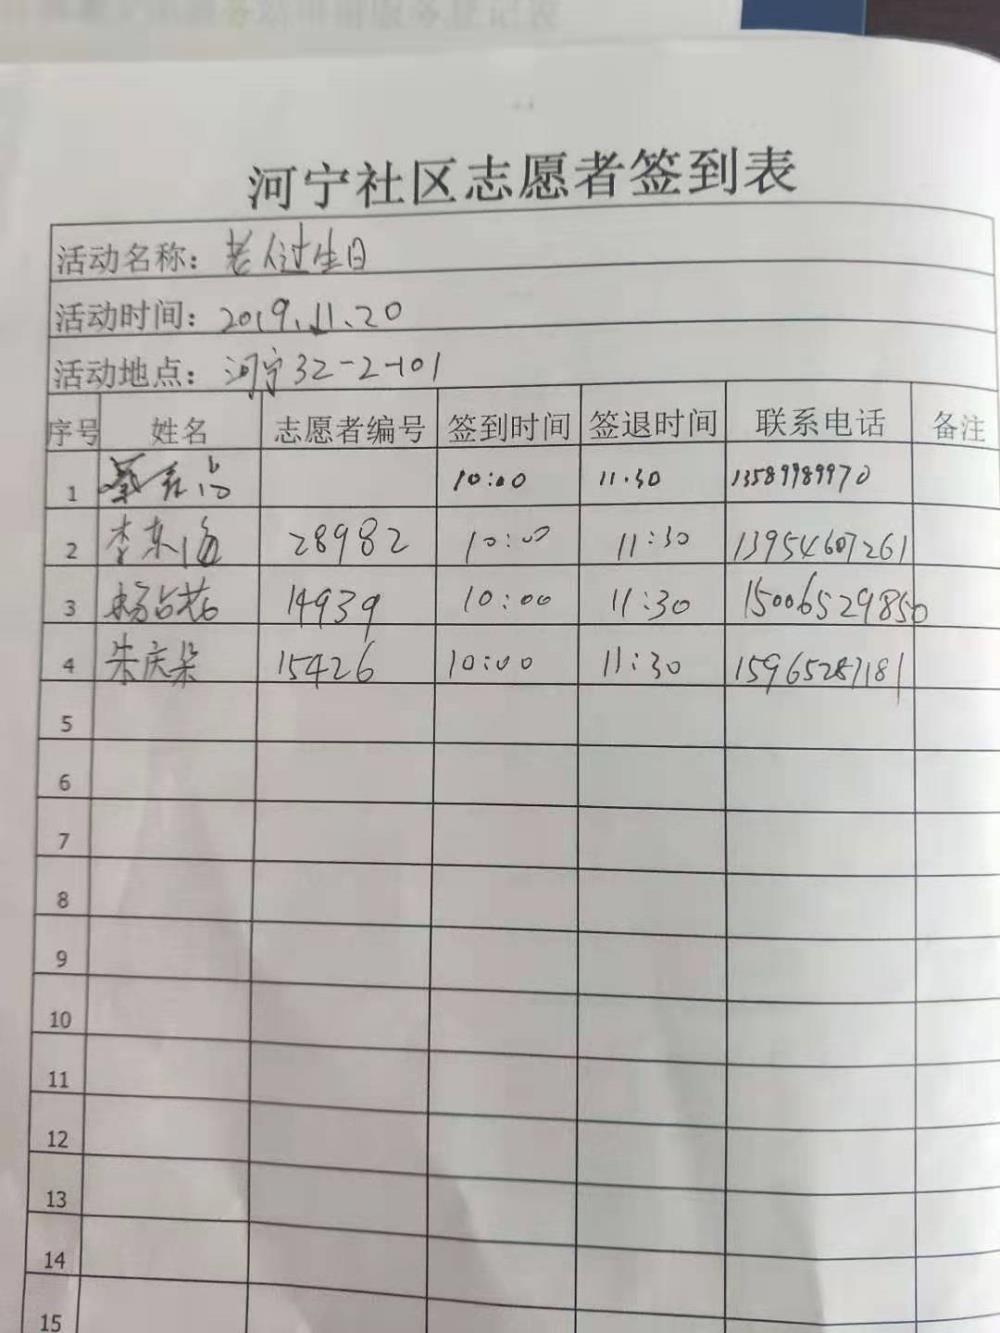 河宁社区志愿者签到表
活动名称：老人过生日
活动时间：2019.11.20
活动地点：河宁32-2-101
序号 姓名 志愿者编号 签到时间 签退时间 联系电话 备注
1 10:00 11.30 13589989970
2 李东海 28982 10:00 11:30 13954607261
3 杨占花 14939 10:00 11:30 15006529850
4 朱庆朵 15426 10:00 11:30 15965287181
5
6
7
8
9
10
11
12
13
14
15